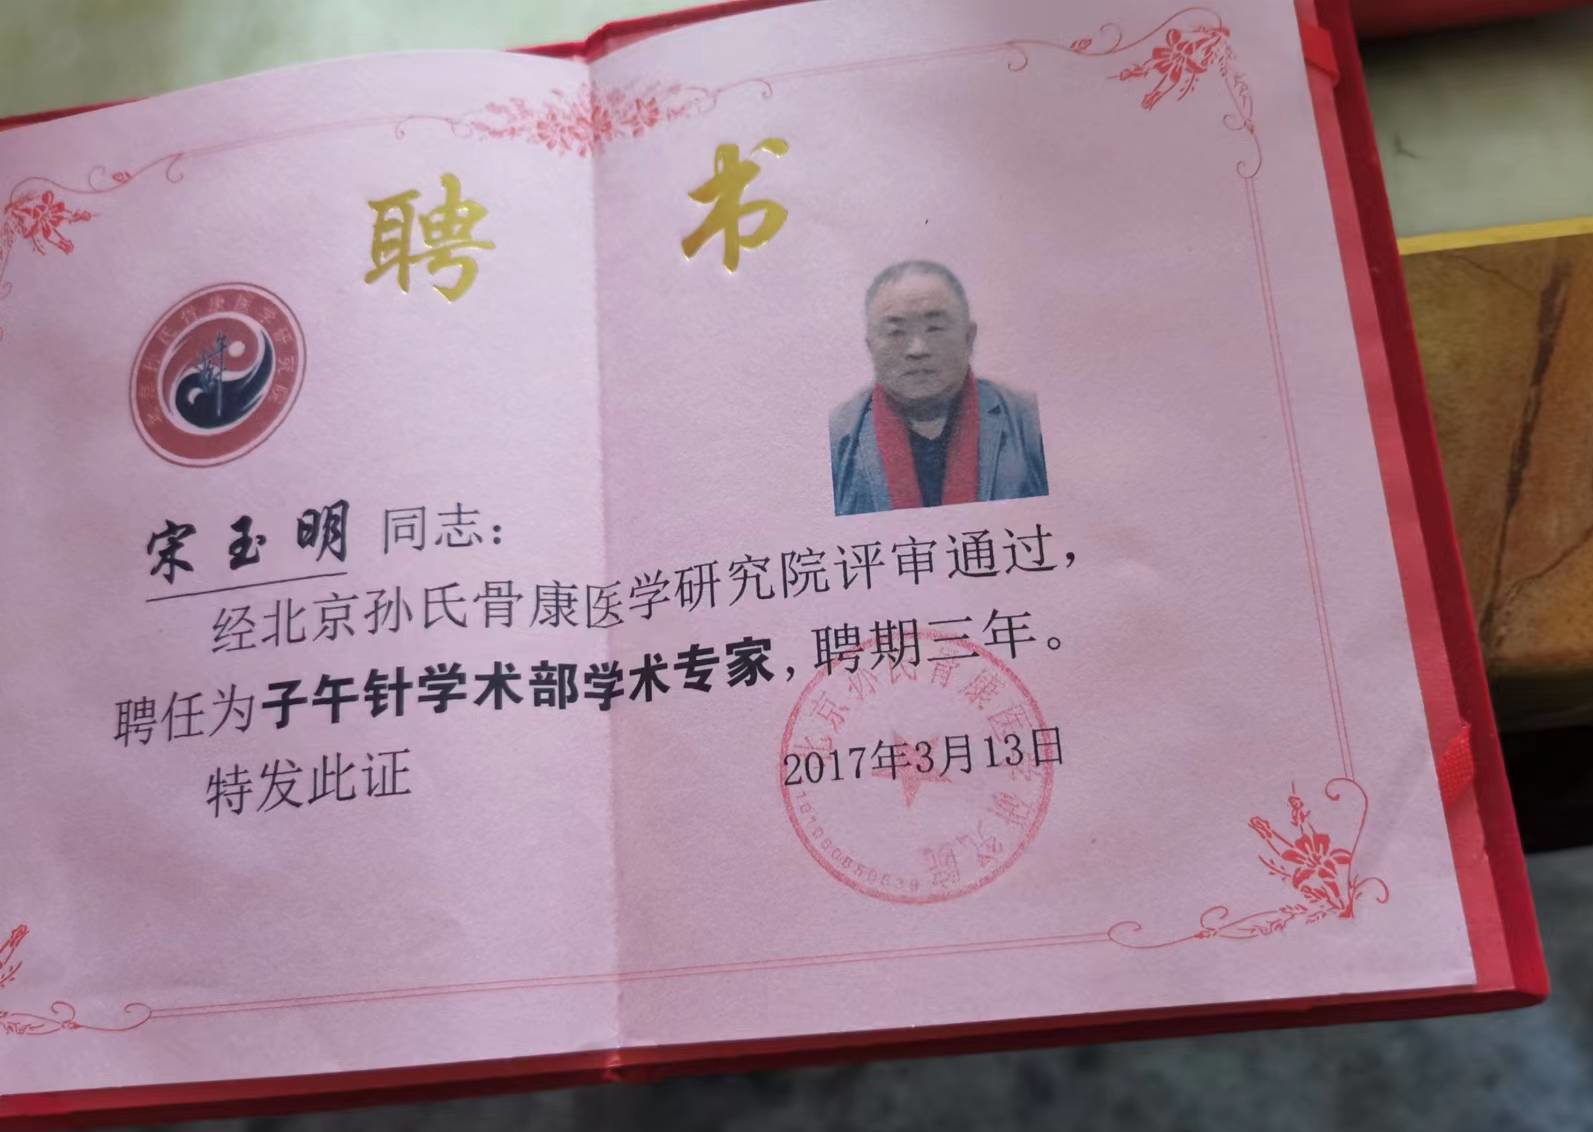 聘 书
宋玉明 同志：
经北京孙氏骨康医学研究院评审通过，
聘任为子午针学术部学术专家，聘期三年。
特发此证
2017年3月13日
北京孙氏骨康医学研究院